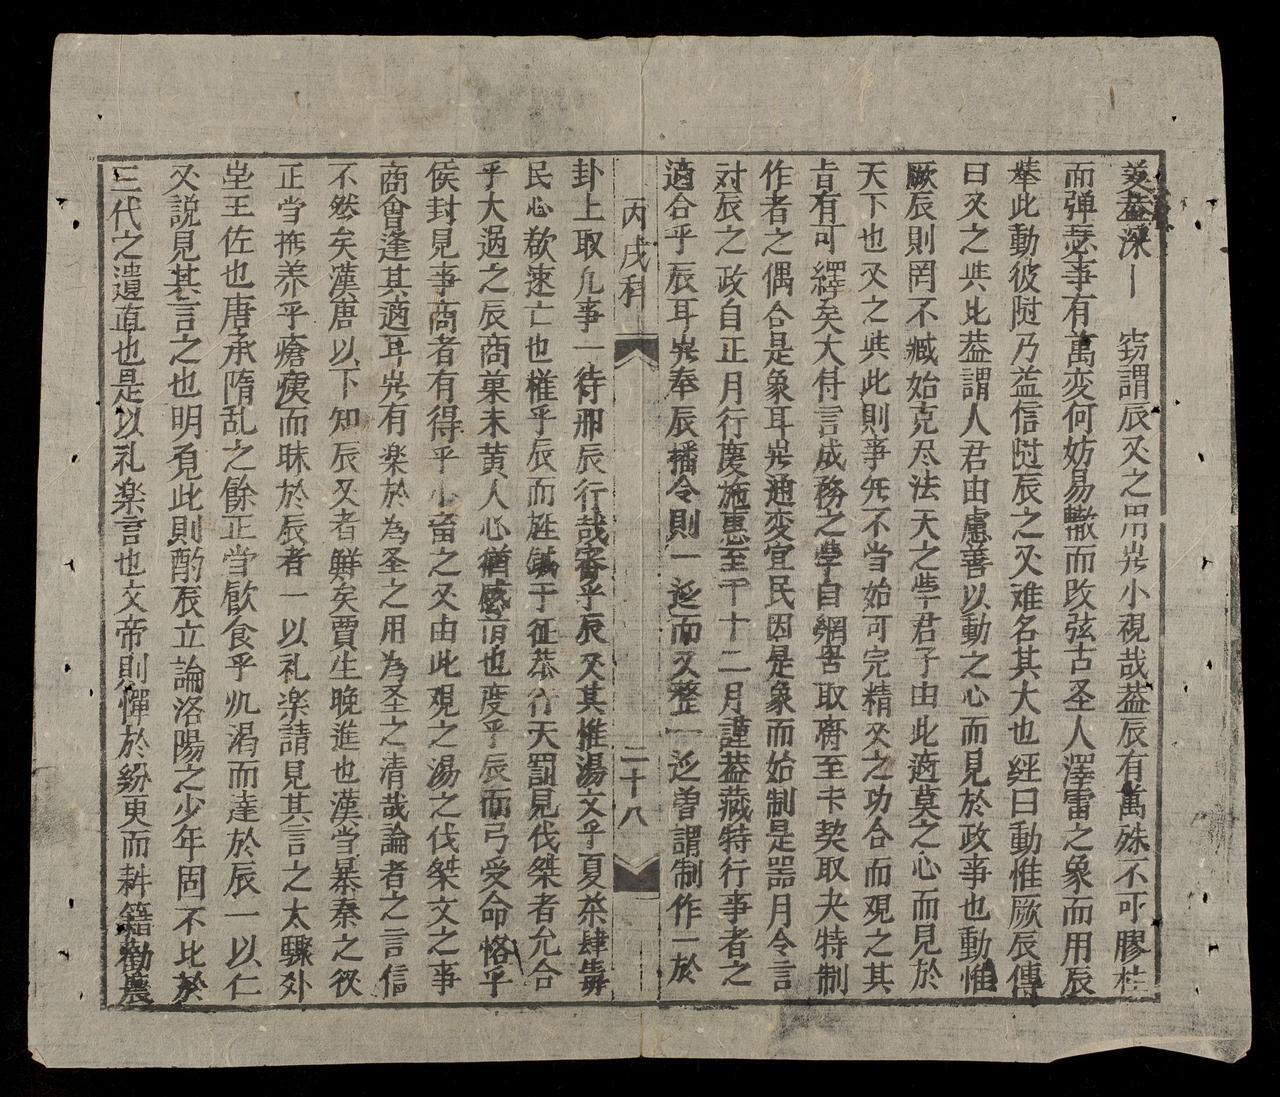 羙蓋深〡 窃謂辰乂之用岂小視哉蓋辰有萬殊不可膠桂
而弹瑟事有萬変何妨易轍而改弦古圣人澤雷之象而用辰
奉此動彼附乃益信附辰之乂难名其大也經曰動惟厥辰傳
曰乂之此蓋謂人君由慮善以動之心而見於政事也動惟
厥辰則罔不臧始克尽法天之学君子由此適莫之心而見於
天下也乂之此則事無不当始可完精乂之功合而观之其
旨有可繹矣大傳言成務之学自網罟取离至卡契取夬特制
作者之偶合是象耳岂通変宜民因是象而始制是噐月令言
对辰之政自正月行慶施惠至于十二月謹蓋藏特行事者之
適合乎辰耳岂奉辰播令則一而乂整一曽謂制作一於
丙戌科 二十八
卦上取凢事一待那辰行哉審乎辰乂其惟湯文乎夏桀肆
民心欲速亡也權乎辰而鉞于征恭行天罰見伐桀者允合
乎大過之辰商菓未黄人心猶感也度乎辰而弓受命恪乎
侯封見事商者有得乎小畜之乂由此观之湯之伐桀文之事
商會逢其適耳岂有楽於為圣之用為圣之清哉論者之言信
不然矣漢唐以下知辰乂者鮮矣賈生晚進也漢当暴秦之後
正当撫养乎瘡痍而昧於辰者一以礼楽請見其言之太驟外
王佐也唐承隋乱之餘正当飲食乎飢渴而達於辰一以仁
又説見其言之也明看此則酌辰立論洛陽之少年固不比於
三代之遺直也是以礼楽言也文帝則憚於紛更而耕籍勸農